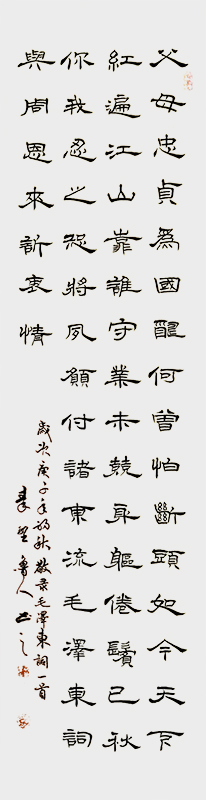 父母忠貞為國何曾怕斷頭如今天下
紅遍江山靠誰守業未競身軀倦鬢已秋
你我忍之將夙願付諸東流毛澤東詞
與周恩來訴衷情
歲次庚子年初秋敬录毛澤東詞一首
魯人书之